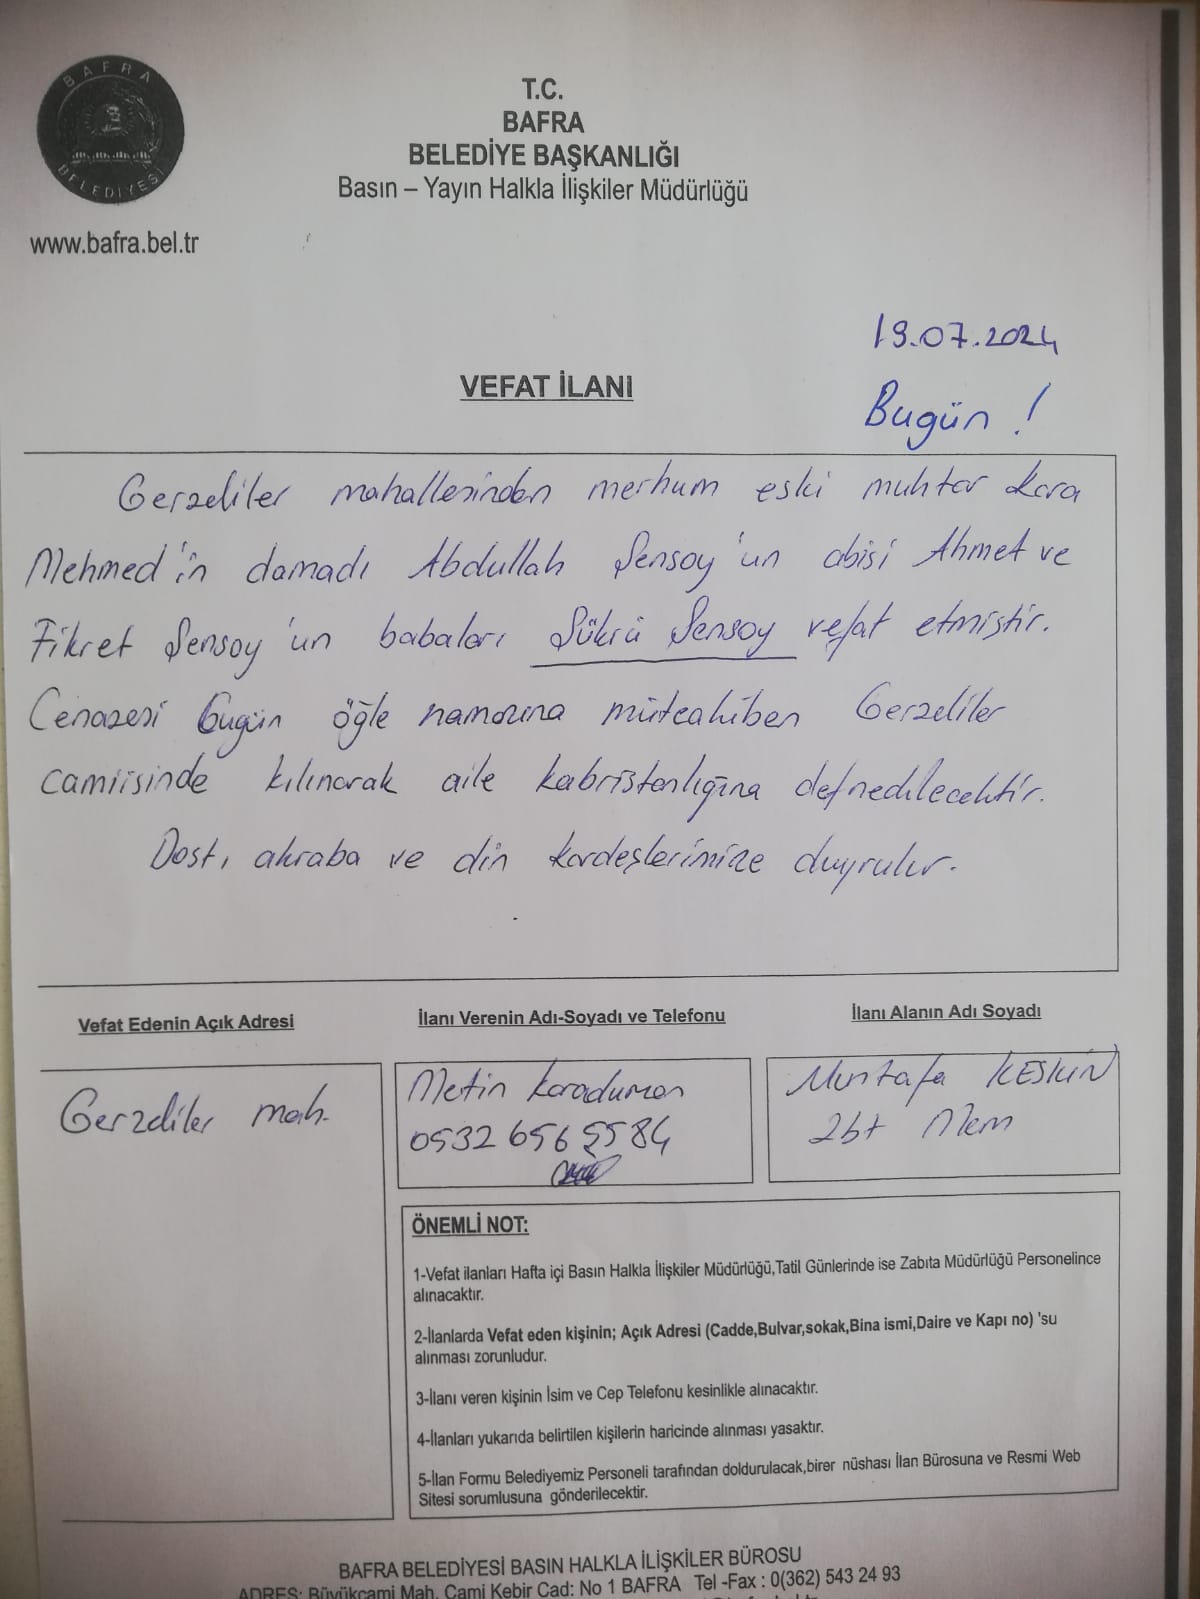 BAFRA
BELEDİYESİ
www.bafra.bel.tr
T.C.
BAFRA
BELEDİYE BAŞKANLIĞI
Basın – Yayın Halkla İlişkiler Müdürlüğü
19.07.2024
VEFAT İLANI
Bugün !
Gerzeliler mahallesinden merhum eski muhtar Kara
Mehmed'in damadı Abdullah Şensoy'un abisi Ahmet ve
Fikret Şensoy'un babaları Şükrü Şensoy vefat etmiştir.
Cenazesi bugün öğle namazına müteakiben Gerzeliler
camiisinde kılınarak aile kabristanlığına defnedilecektir.
Dost, akraba ve din kardeşlerimize duyrulur.
Vefat Edenin Açık Adresi
İlanı Verenin Adı-Soyadı ve Telefonu
İlanı Alanın Adı Soyadı
Gerzeliler mah.
Metin Karaduman
0532 656 5584
Mustafa KESKİN
Zbt Mem
ÖNEMLİ NOT:
1-Vefat ilanları Hafta içi Basın Halkla İlişkiler Müdürlüğü,Tatil Günlerinde ise Zabıta Müdürlüğü Personelince
alınacaktır.
2-İlanlarda Vefat eden kişinin; Açık Adresi (Cadde,Bulvar,sokak,Bina ismi,Daire ve Kapı no) 'su
alınması zorunludur.
3-İlanı veren kişinin İsim ve Cep Telefonu kesinlikle alınacaktır.
4-İlanları yukarıda belirtilen kişilerin haricinde alınması yasaktır.
5-İlan Formu Belediyemiz Personeli tarafından doldurulacak,birer nüshası İlan Bürosuna ve Resmi Web
Sitesi sorumlusuna gönderilecektir.
BAFRA BELEDİYESİ BASIN HALKLA İLİŞKİLER BÜROSU
ADRES: Büyükcami Mah. Cami Kebir Cad: No 1 BAFRA Tel -Fax : 0(362) 543 24 93